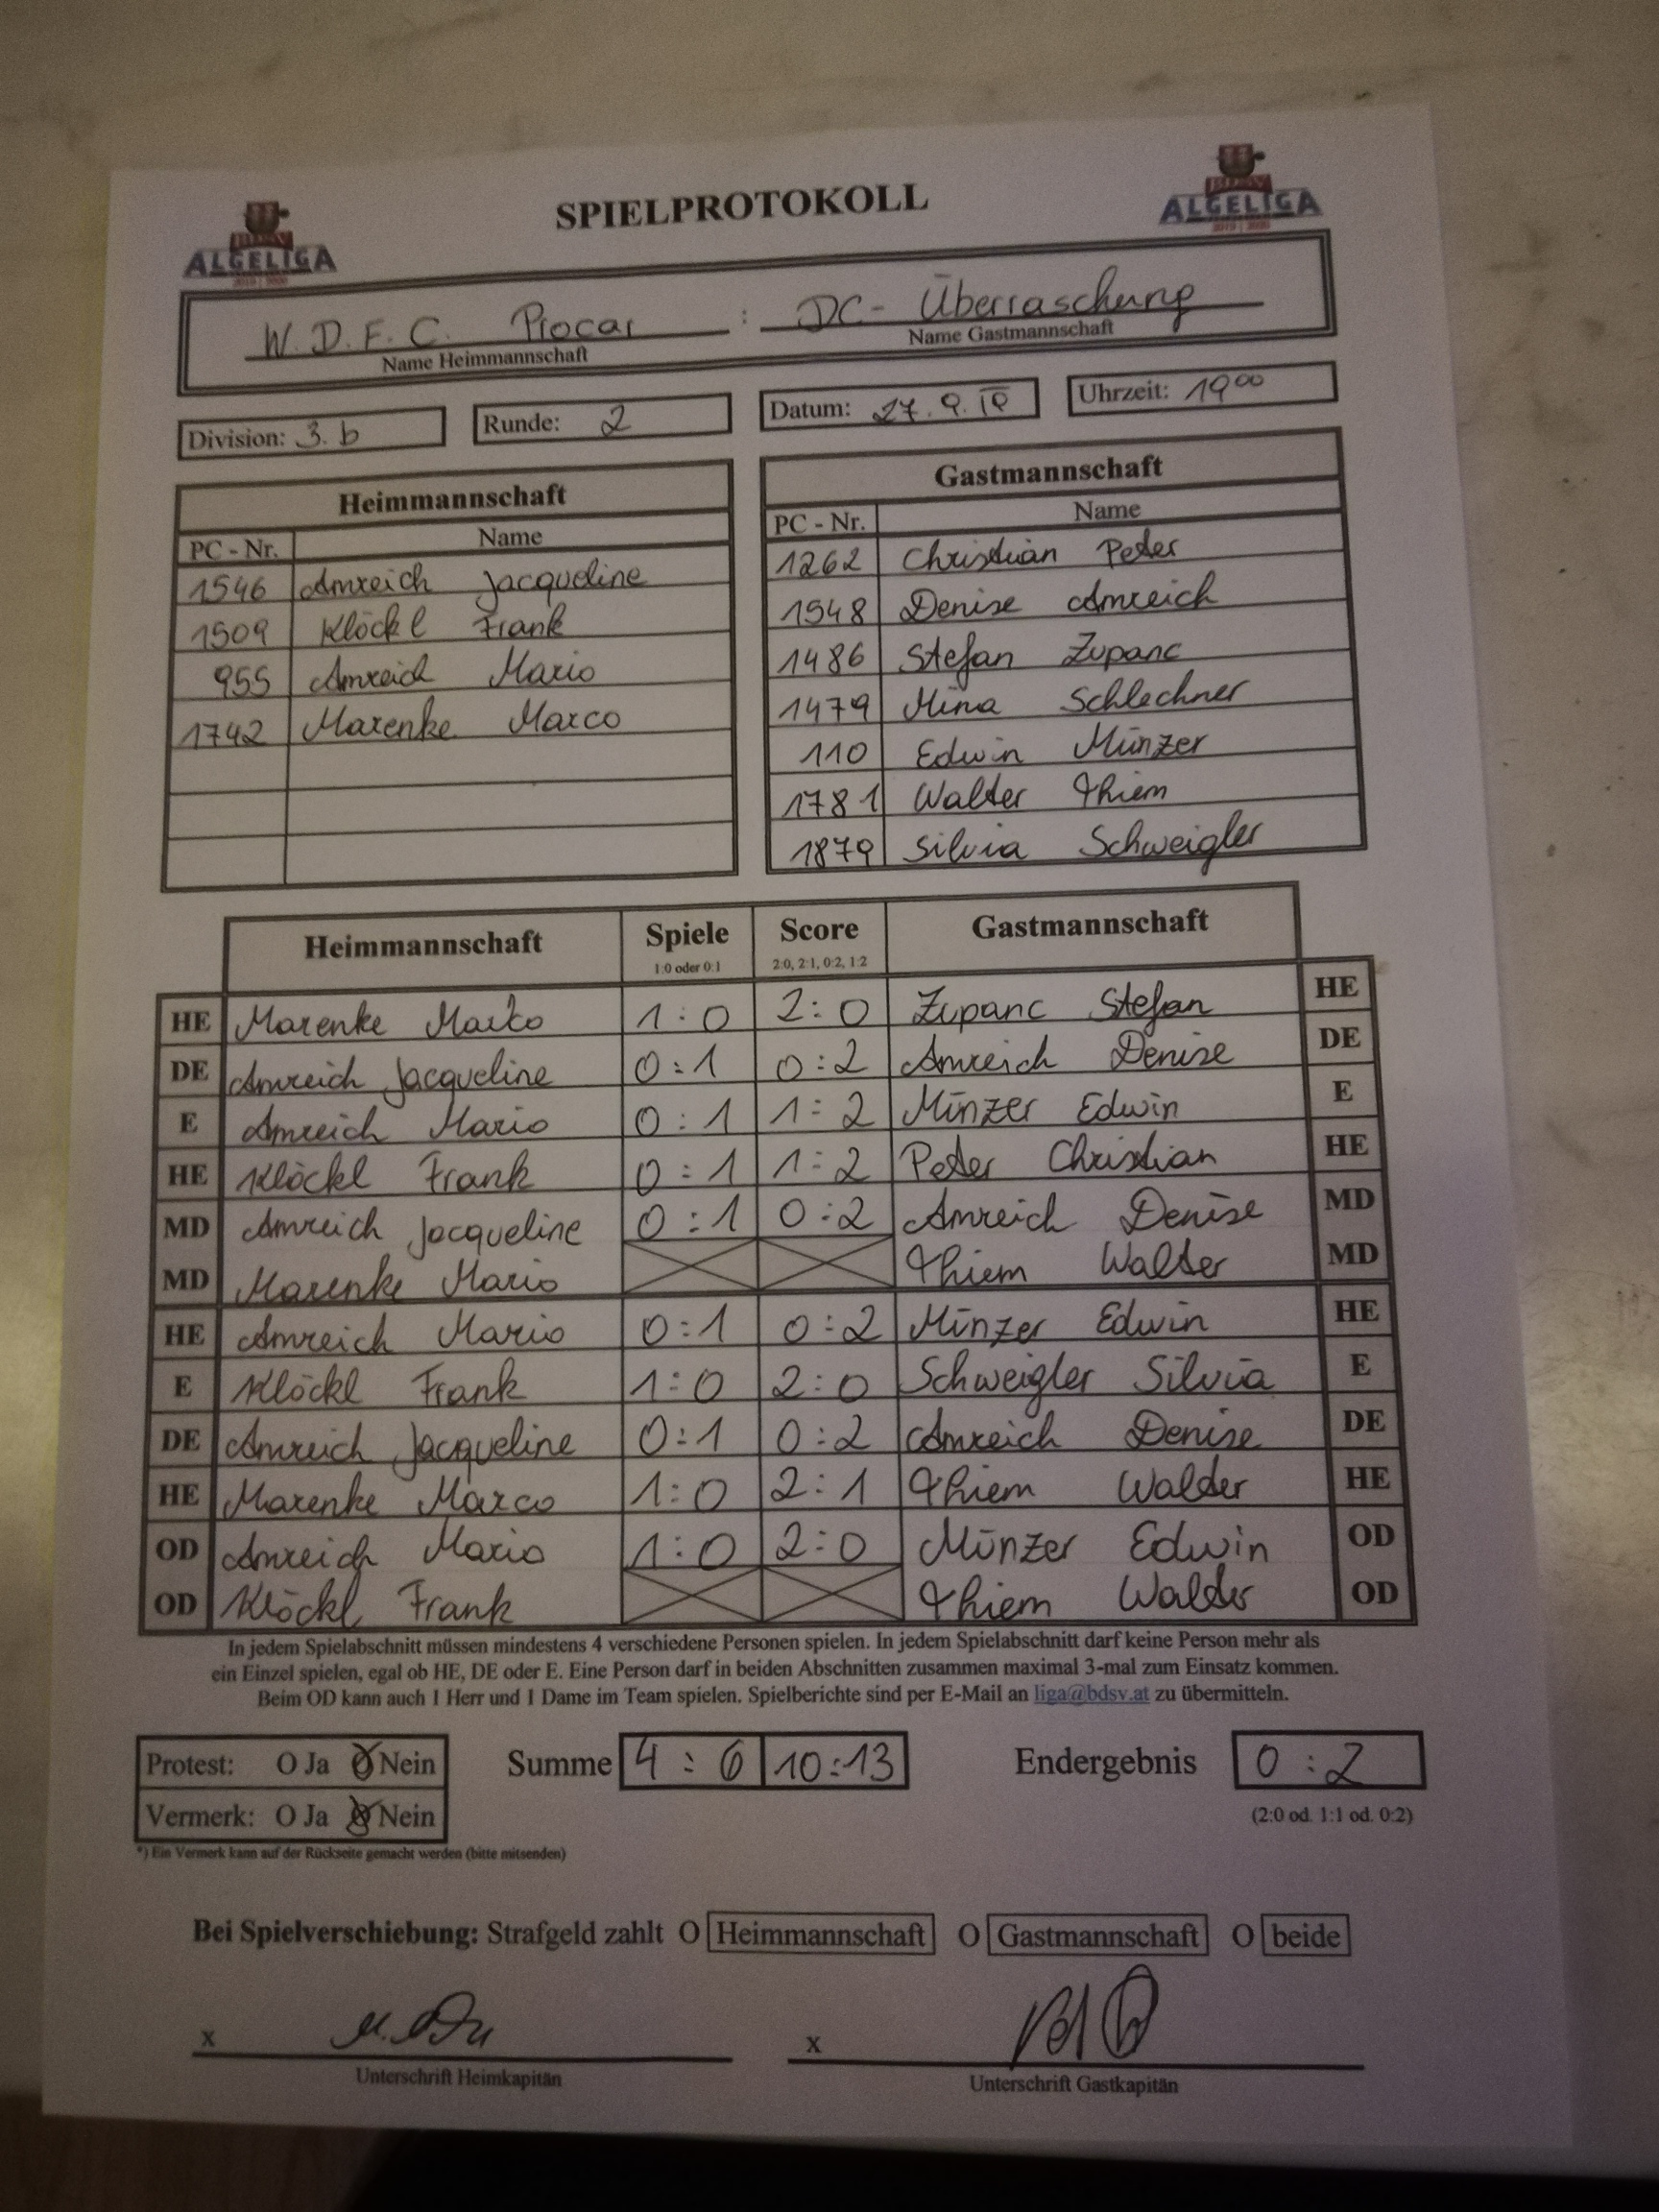 SPIELPROTOKOLL
BDSV
ALGELIGA
2019 | 2020
BDSV
ALGELIGA
2019 | 2020
W. D. F. C. Procar : DC- Überraschung
Name Heimmannschaft Name Gastmannschaft
Division: 3. b Runde: 2 Datum: 27. 9. 19 Uhrzeit: 19 00
Heimmannschaft
PC - Nr. Name
1546 Amreich Jacqueline
1509 Klöckl Frank
955 Amreich Mario
1742 Marenke Marco
Gastmannschaft
PC - Nr. Name
1262 Christian Peter
1548 Denise Amreich
1486 Stefan Zupanc
1479 Mina Schlechner
110 Edwin Münzer
1781 Walter Thiem
1879 Silvia Schweigler
Heimmannschaft Spiele Score Gastmannschaft
1:0 oder 0:1 2:0, 2:1, 0:2, 1:2
HE Marenke Marko 1:0 2:0 Zupanc Stefan HE
DE Amreich Jacqueline 0:1 0:2 Amreich Denise DE
E Amreich Mario 0:1 1:2 Münzer Edwin E
HE Klöckl Frank 0:1 1:2 Peter Christian HE
MD Amreich Jacqueline 0:1 0:2 Amreich Denise MD
MD Marenke Mario Thiem Walter MD
HE Amreich Mario 0:1 0:2 Münzer Edwin HE
E Klöckl Frank 1:0 2:0 Schweigler Silvia E
DE Amreich Jacqueline 0:1 0:2 Amreich Denise DE
HE Marenke Marco 1:0 2:1 Thiem Walter HE
OD Amreich Mario 1:0 2:0 Münzer Edwin OD
OD Klöckl Frank Thiem Walter OD
In jedem Spielabschnitt müssen mindestens 4 verschiedene Personen spielen. In jedem Spielabschnitt darf keine Person mehr als
ein Einzel spielen, egal ob HE, DE oder E. Eine Person darf in beiden Abschnitten zusammen maximal 3-mal zum Einsatz kommen.
Beim OD kann auch 1 Herr und 1 Dame im Team spielen. Spielberichte sind per E-Mail an liga@bdsv.at zu übermitteln.
Protest: O Ja O Nein Summe 4 : 6 10:13 Endergebnis 0 : 2
Vermerk: O Ja O Nein (2:0 od. 1:1 od. 0:2)
*) Ein Vermerk kann auf der Rückseite gemacht werden (bitte mitsenden)
Bei Spielverschiebung: Strafgeld zahlt O Heimmannschaft O Gastmannschaft O beide
x x
Unterschrift Heimkapitän Unterschrift Gastkapitän